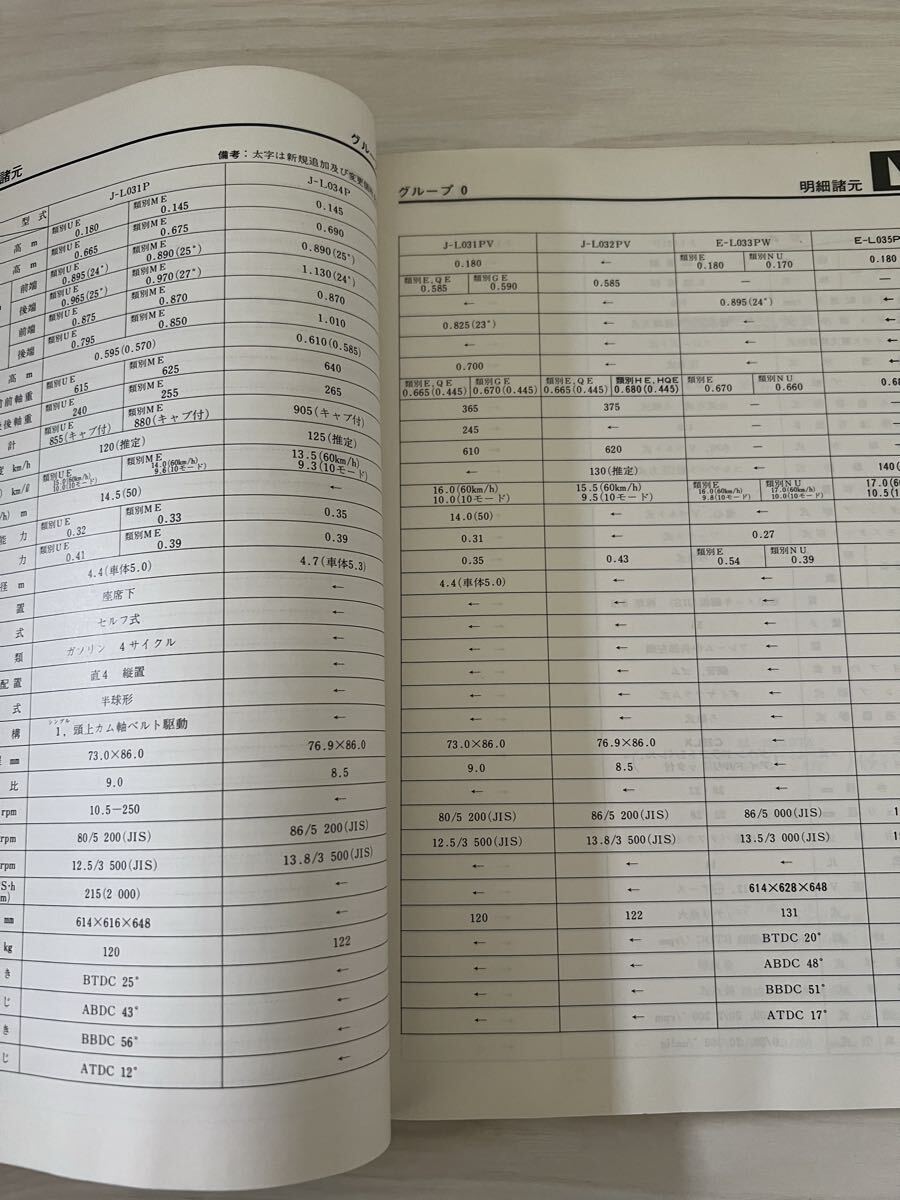 諸元
グルー
備考：太字は新規追加及び変更個所を
型 式 J-L031P J-L034P
高 m 類別UE 0.180 類別ME 0.145 0.145
高 m 類別UE 0.665 類別ME 0.675 0.690
前端 類別UE 0.895(24°) 類別ME 0.890(25°) 0.890(25°)
後端 類別UE 0.965(25°) 類別ME 0.970(27°) 1.130(24°)
前端 類別UE 0.875 類別ME 0.870 0.870
後端 類別UE 0.795 類別ME 0.850 1.010
高 m 0.595(0.570) 0.610(0.585)
前前軸重 類別UE 615 類別ME 625 640
後軸重 類別UE 240 類別ME 255 265
計 類別UE 855(キャブ付) 類別ME 880(キャブ付) 905(キャブ付)
度 km/h 120(推定) 125(推定)
km/ℓ 類別UE 15.0(60km/h) 10.0(10モード) 類別ME 14.0(60km/h) 9.6(10モード) 13.5(60km/h) 9.3(10モード)
/h) m 14.5(50) ←
能 力 類別UE 0.32 類別ME 0.33 0.35
力 類別UE 0.41 類別ME 0.39 0.39
径 m 4.4(車体5.0) 4.7(車体5.3)
置 座席下 ←
式 セルフ式 ←
類 ガソリン 4サイクル ←
配置 直4 縦置 ←
式 半球形 ←
構 シングル 1，頭上カム軸ベルト駆動 ←
mm 73.0×86.0 76.9×86.0
比 9.0 8.5
rpm 10.5−250 ←
rpm 80/5 200(JIS) 86/5 200(JIS)
rpm 12.5/3 500(JIS) 13.8/3 500(JIS)
S·h m) 215(2 000) ←
mm 614×616×648 ←
kg 120 122
き BTDC 25° ←
じ ABDC 43° ←
き BBDC 56° ←
じ ATDC 12° ←
グループ 0
明細諸元
J-L031PV J-L032PV E-L033PW E-L035P
0.180 ← 類別E 0.180 類別NU 0.170 0.180
類別E, QE 0.585 類別GE 0.590 0.585 — —
← ← 0.895(24°) ←
0.825(23°) ← ← ←
← ← ← ←
0.700 ← ← ←
類別E, QE 0.665(0.445) 類別GE 0.670(0.445) 類別E, QE 0.665(0.445) 類別HE, HQE 0.680(0.445) 類別E 0.670 類別NU 0.660 0.68
365 375 — —
245 ← — —
610 620 — —
← 130(推定) ← 140(
16.0(60km/h) 10.0(10モード) 15.5(60km/h) 9.5(10モード) 類別E 16.0(60km/h) 9.8(10モード) 類別NU 17.0(60km/h) 10.0(10モード) 17.0(60 10.5(10
14.0(50) ← ← ←
0.31 ← 0.27
0.35 0.43 類別E 0.54 類別NU 0.39
4.4(車体5.0) ← ←
← ← ←
← ← ←
← ← ←
← ← ←
← ← ←
← ← ←
73.0×86.0 76.9×86.0 ←
9.0 8.5 ←
← ← ←
80/5 200(JIS) 86/5 200(JIS) 86/5 000(JIS) 1
12.5/3 500(JIS) 13.8/3 500(JIS) 13.5/3 000(JIS) 1
← ← ←
← ← 614×628×648
120 122 131
← ← BTDC 20°
← ← ABDC 48°
← ← BBDC 51°
← ← ATDC 17°